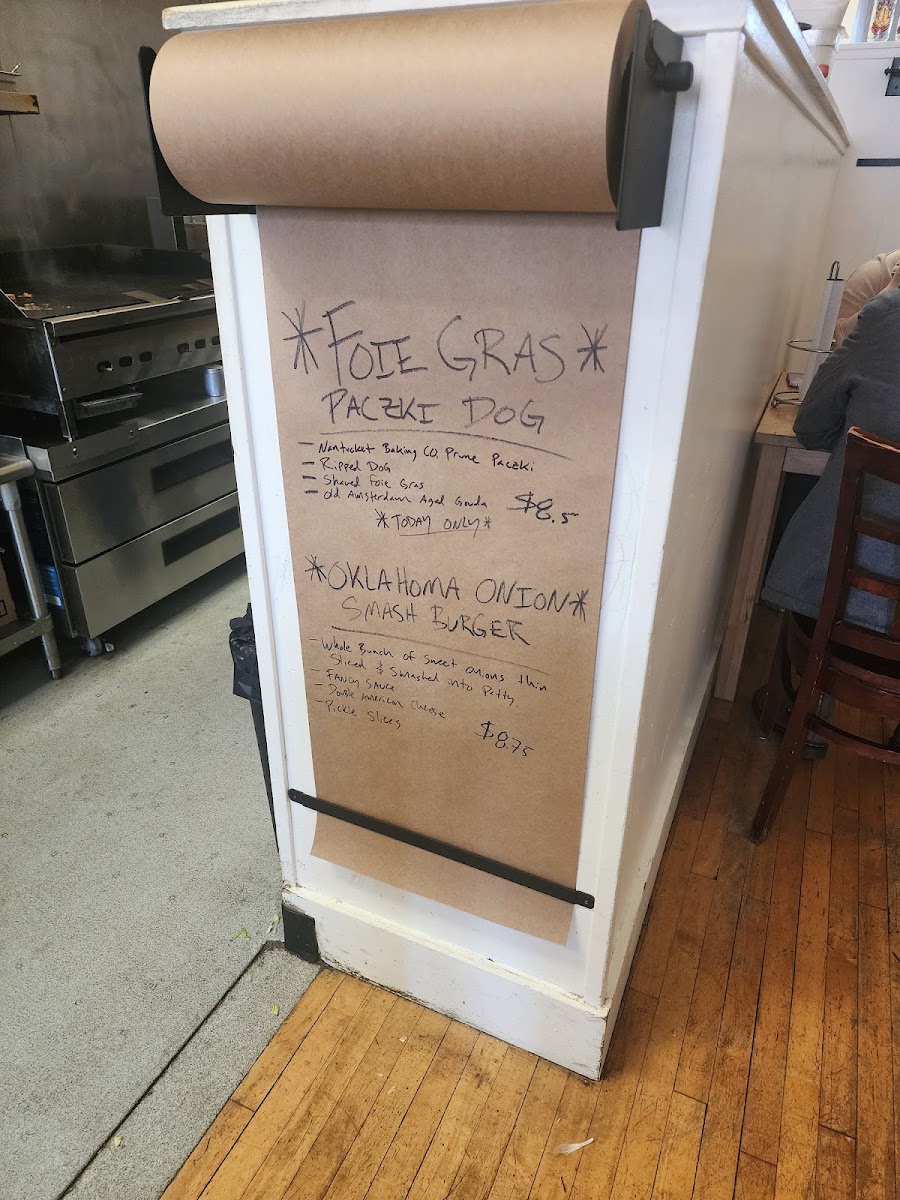 *FOIE GRAS*
PACZKI DOG
- Nantucket Baking Co. Prune Paczki
- Ripped Dog
- Shaved Foie Gras
- Old Amsterdam Aged Gouda
$8.5
*TODAY ONLY*
*OKLAHOMA ONION*
SMASH BURGER
- Whole Bunch of Sweet onions thin
Sliced & Smashed into Patty
- FANCY SAUCE
- Double American Cheese
- Pickle Slices
$8.75